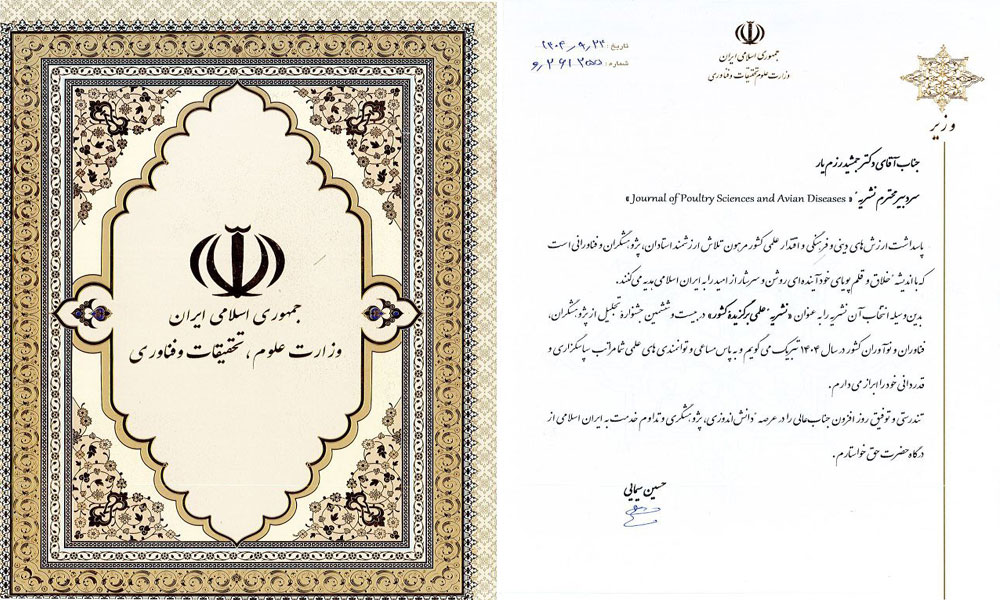 جمهوری اسلامی ایران
وزارت علوم، تحقیقات و فناوری
جمهوری اسلامی ایران
وزارت علوم تحقیقات و فناوری
تاریخ: ۱۴۰۴/۹/۲۴
شماره:
وزیر
جناب آقای دکتر جمشید رزم یار
سردبیر محترم نشریهٔ « Journal of Poultry Sciences and Avian Diseases »
پاسداشت ارزش های دینی و فرهنگی و اقتدار علمی کشور مرهون تلاش ارزشمند استادان، پژوهشگران و فناورانی است
که با اندیشهٔ خلاق و قلم پویای خود آینده ای روشن و سرشار از امید را به ایران اسلامی هدیه می کنند.
بدین وسیله انتخاب آن نشریه را به عنوان «نشریهٔ علمی برگزیدهٔ کشور» در بیست و ششمین جشنوارهٔ تجلیل از پژوهشگران،
فناوران و نوآوران کشور در سال ۱۴۰۴ تبریک می گویم و به پاس مساعی و توانمندی های علمی شما مراتب سپاسگزاری و
قدردانی خود را ابراز می دارم.
تندرستی و توفیق روز افزون جناب عالی را در عرصهٔ دانش اندوزی، پژوهشگری و تداوم خدمت به ایران اسلامی از
درگاه حضرت حق خواستارم.
حسین سیمایی